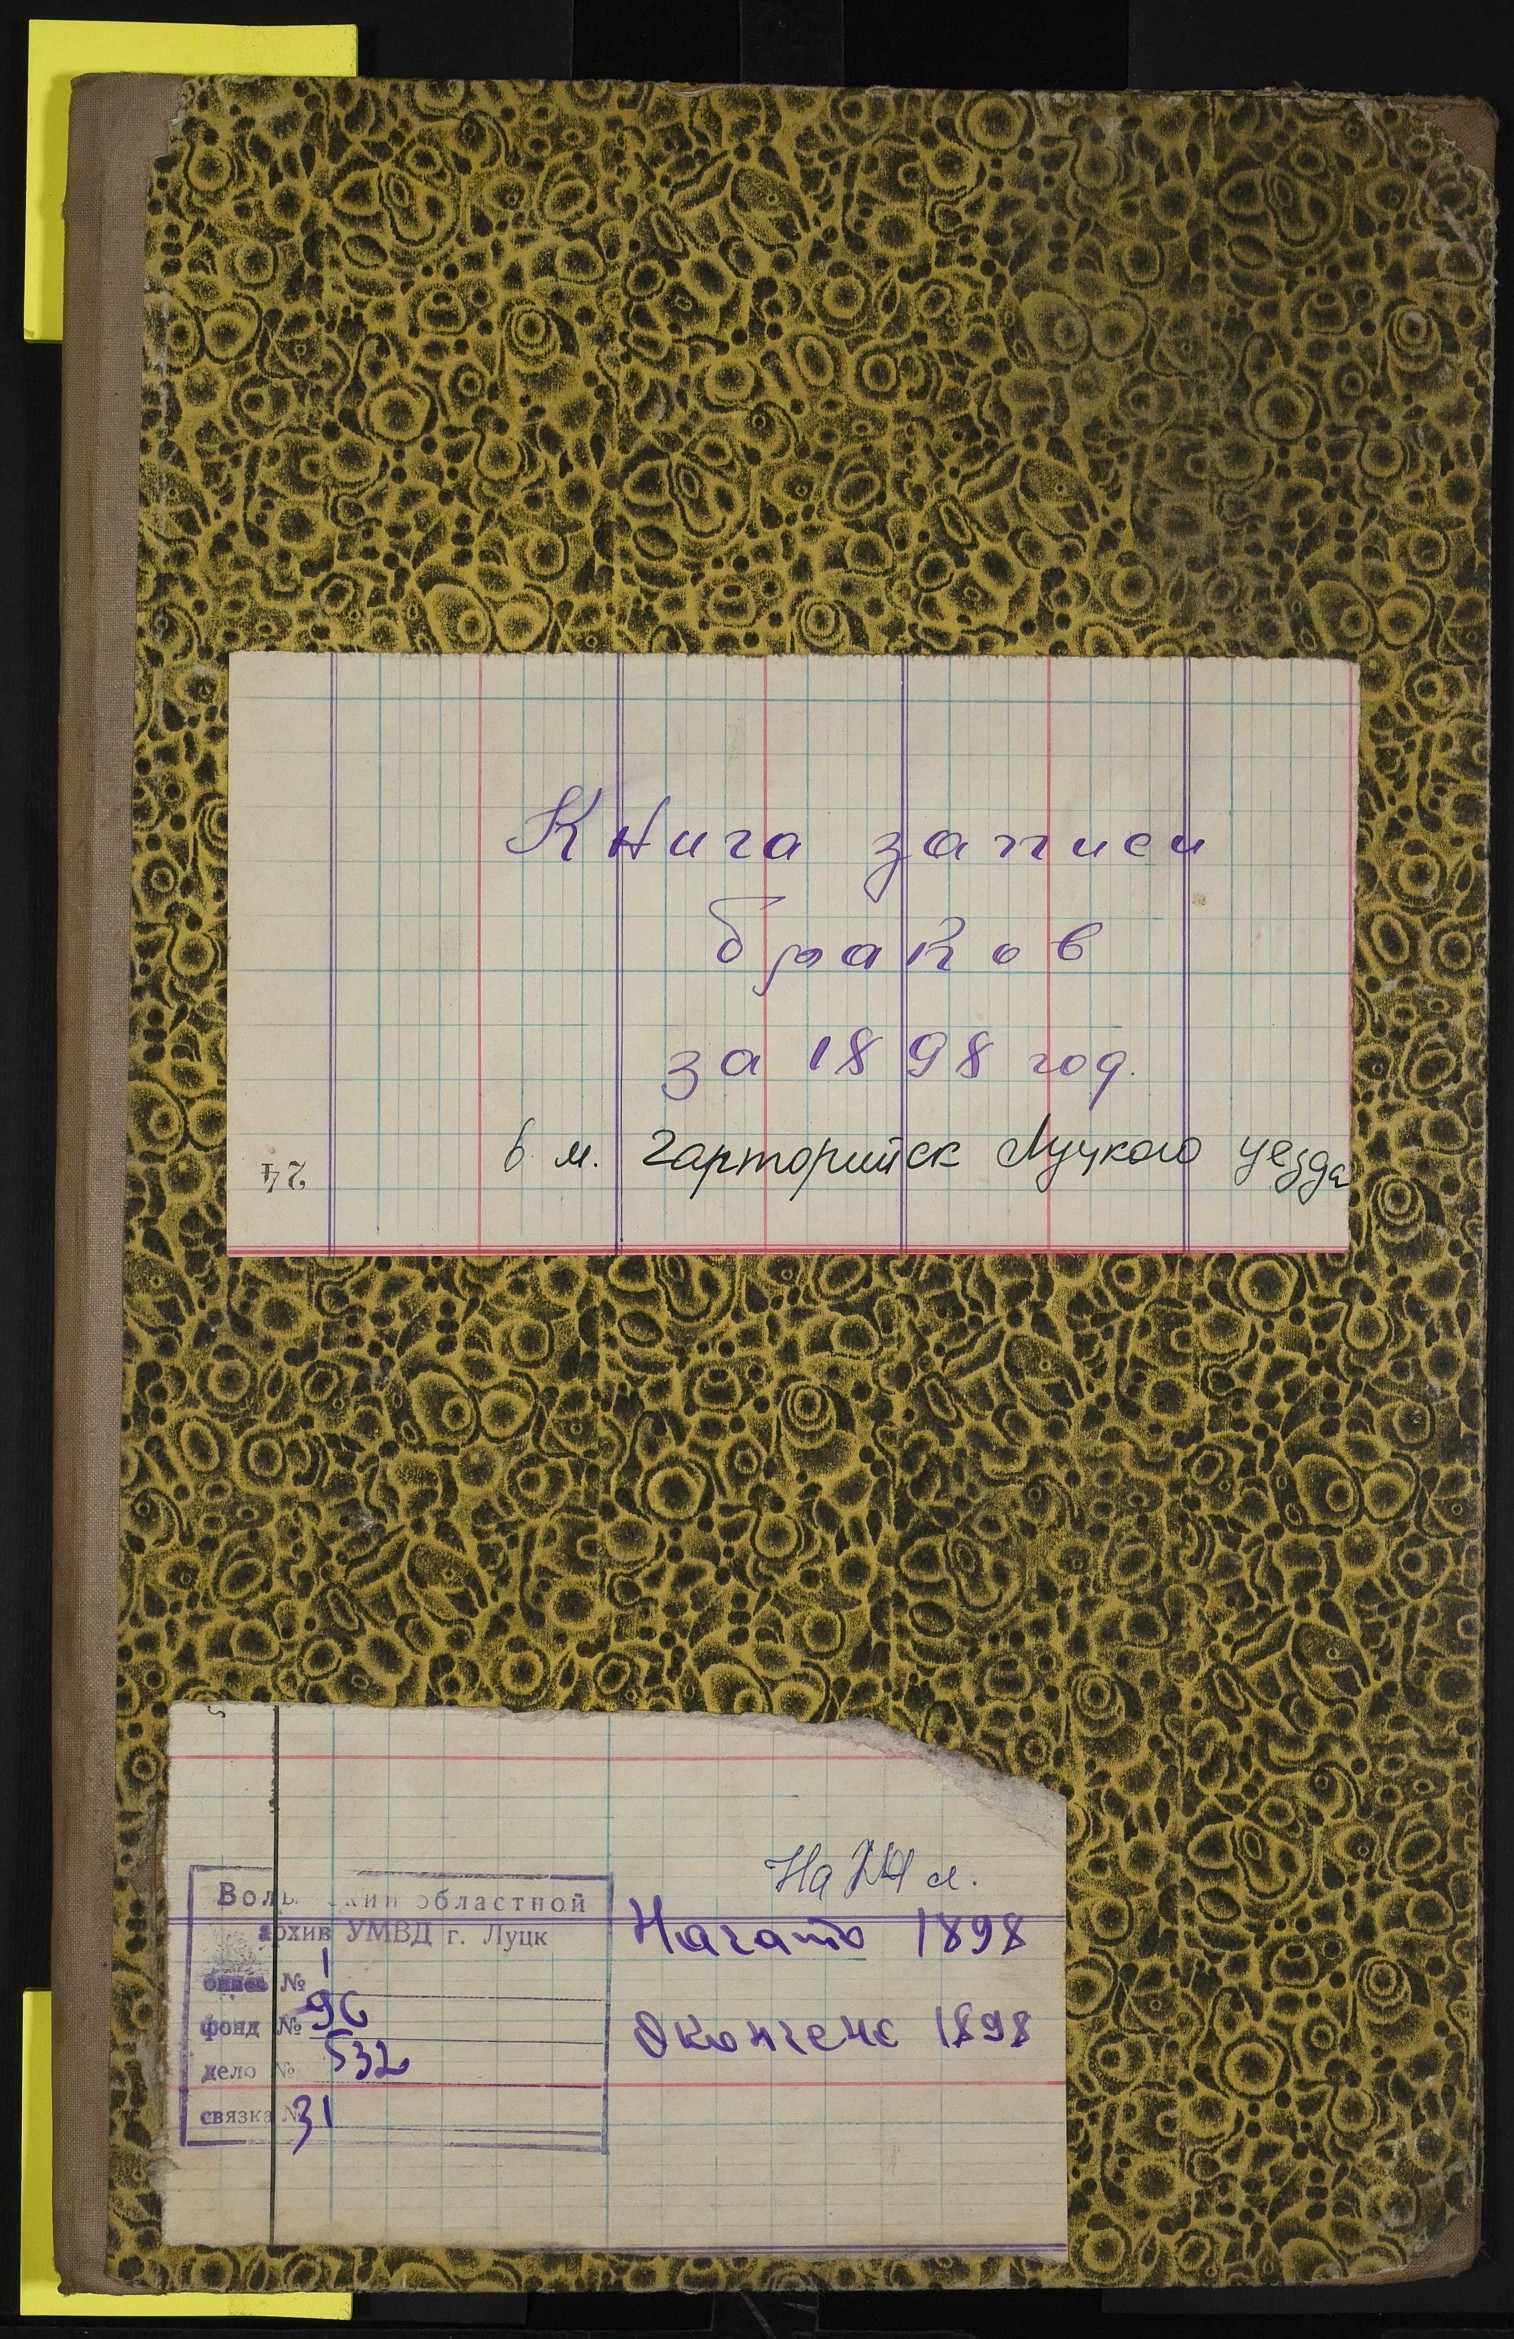 Книга записи
браков
за 1898 год.
в м. Чарторийск Луцкого уезда
24
На л.
Начато 1898
Окончено 1898
Волынский областной
архив УМВД г. Луцк
опись № 1
фонд № 96
дело № 532
связка № 31